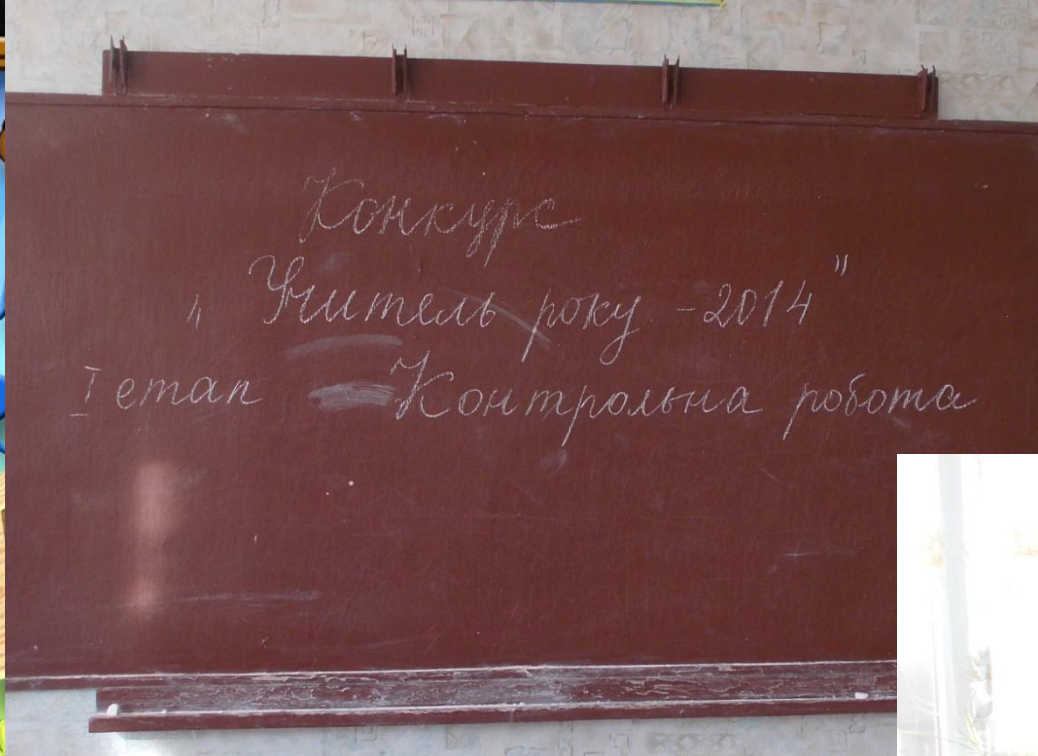 Конкурс
„ Учитель року - 2014"
I етап Контрольна робота